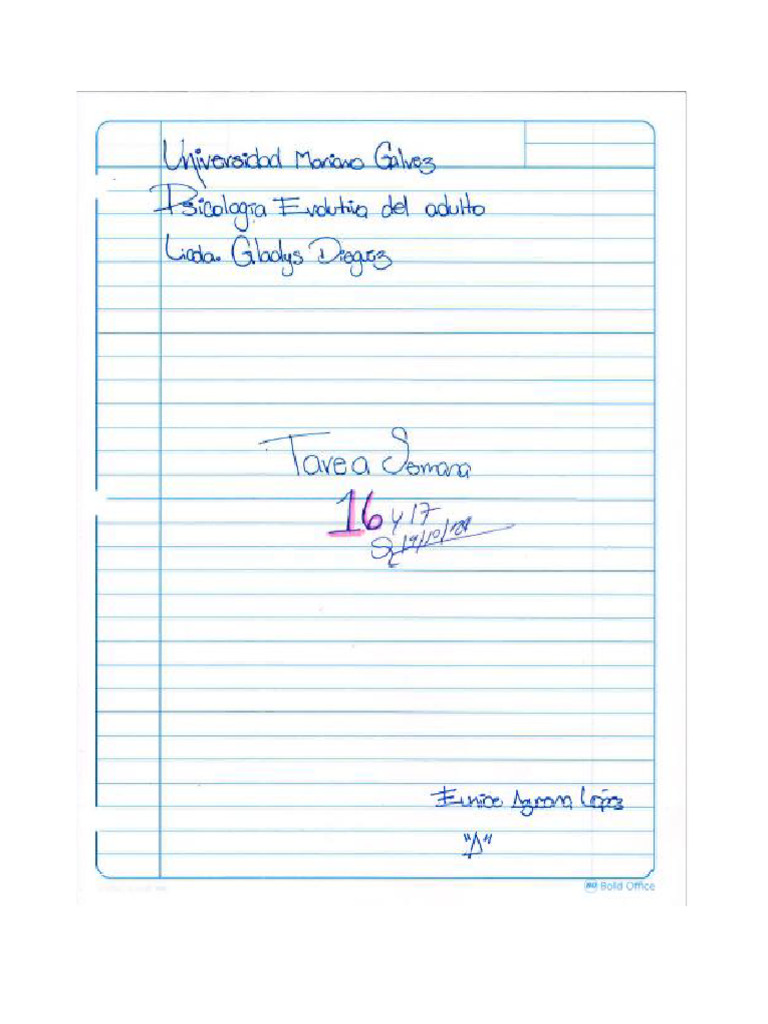 Universidad Mariano Gálvez
Psicología Evolutiva del adulto
Licda. Gladys
Tarea Semana
16 y 17
19/10/
Eunice López
"A"
Bold Office